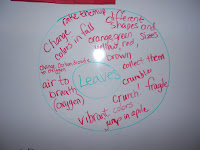 rake them up
different
shapes and
sizes
Change
colors in fall
orange, green
yellow, red,
brown
collect them
change carbon dioxide
to oxygen
air to
breath
(oxygen)
Leaves
crumble
fragile
crunch
vibrant colors
jump in a pile